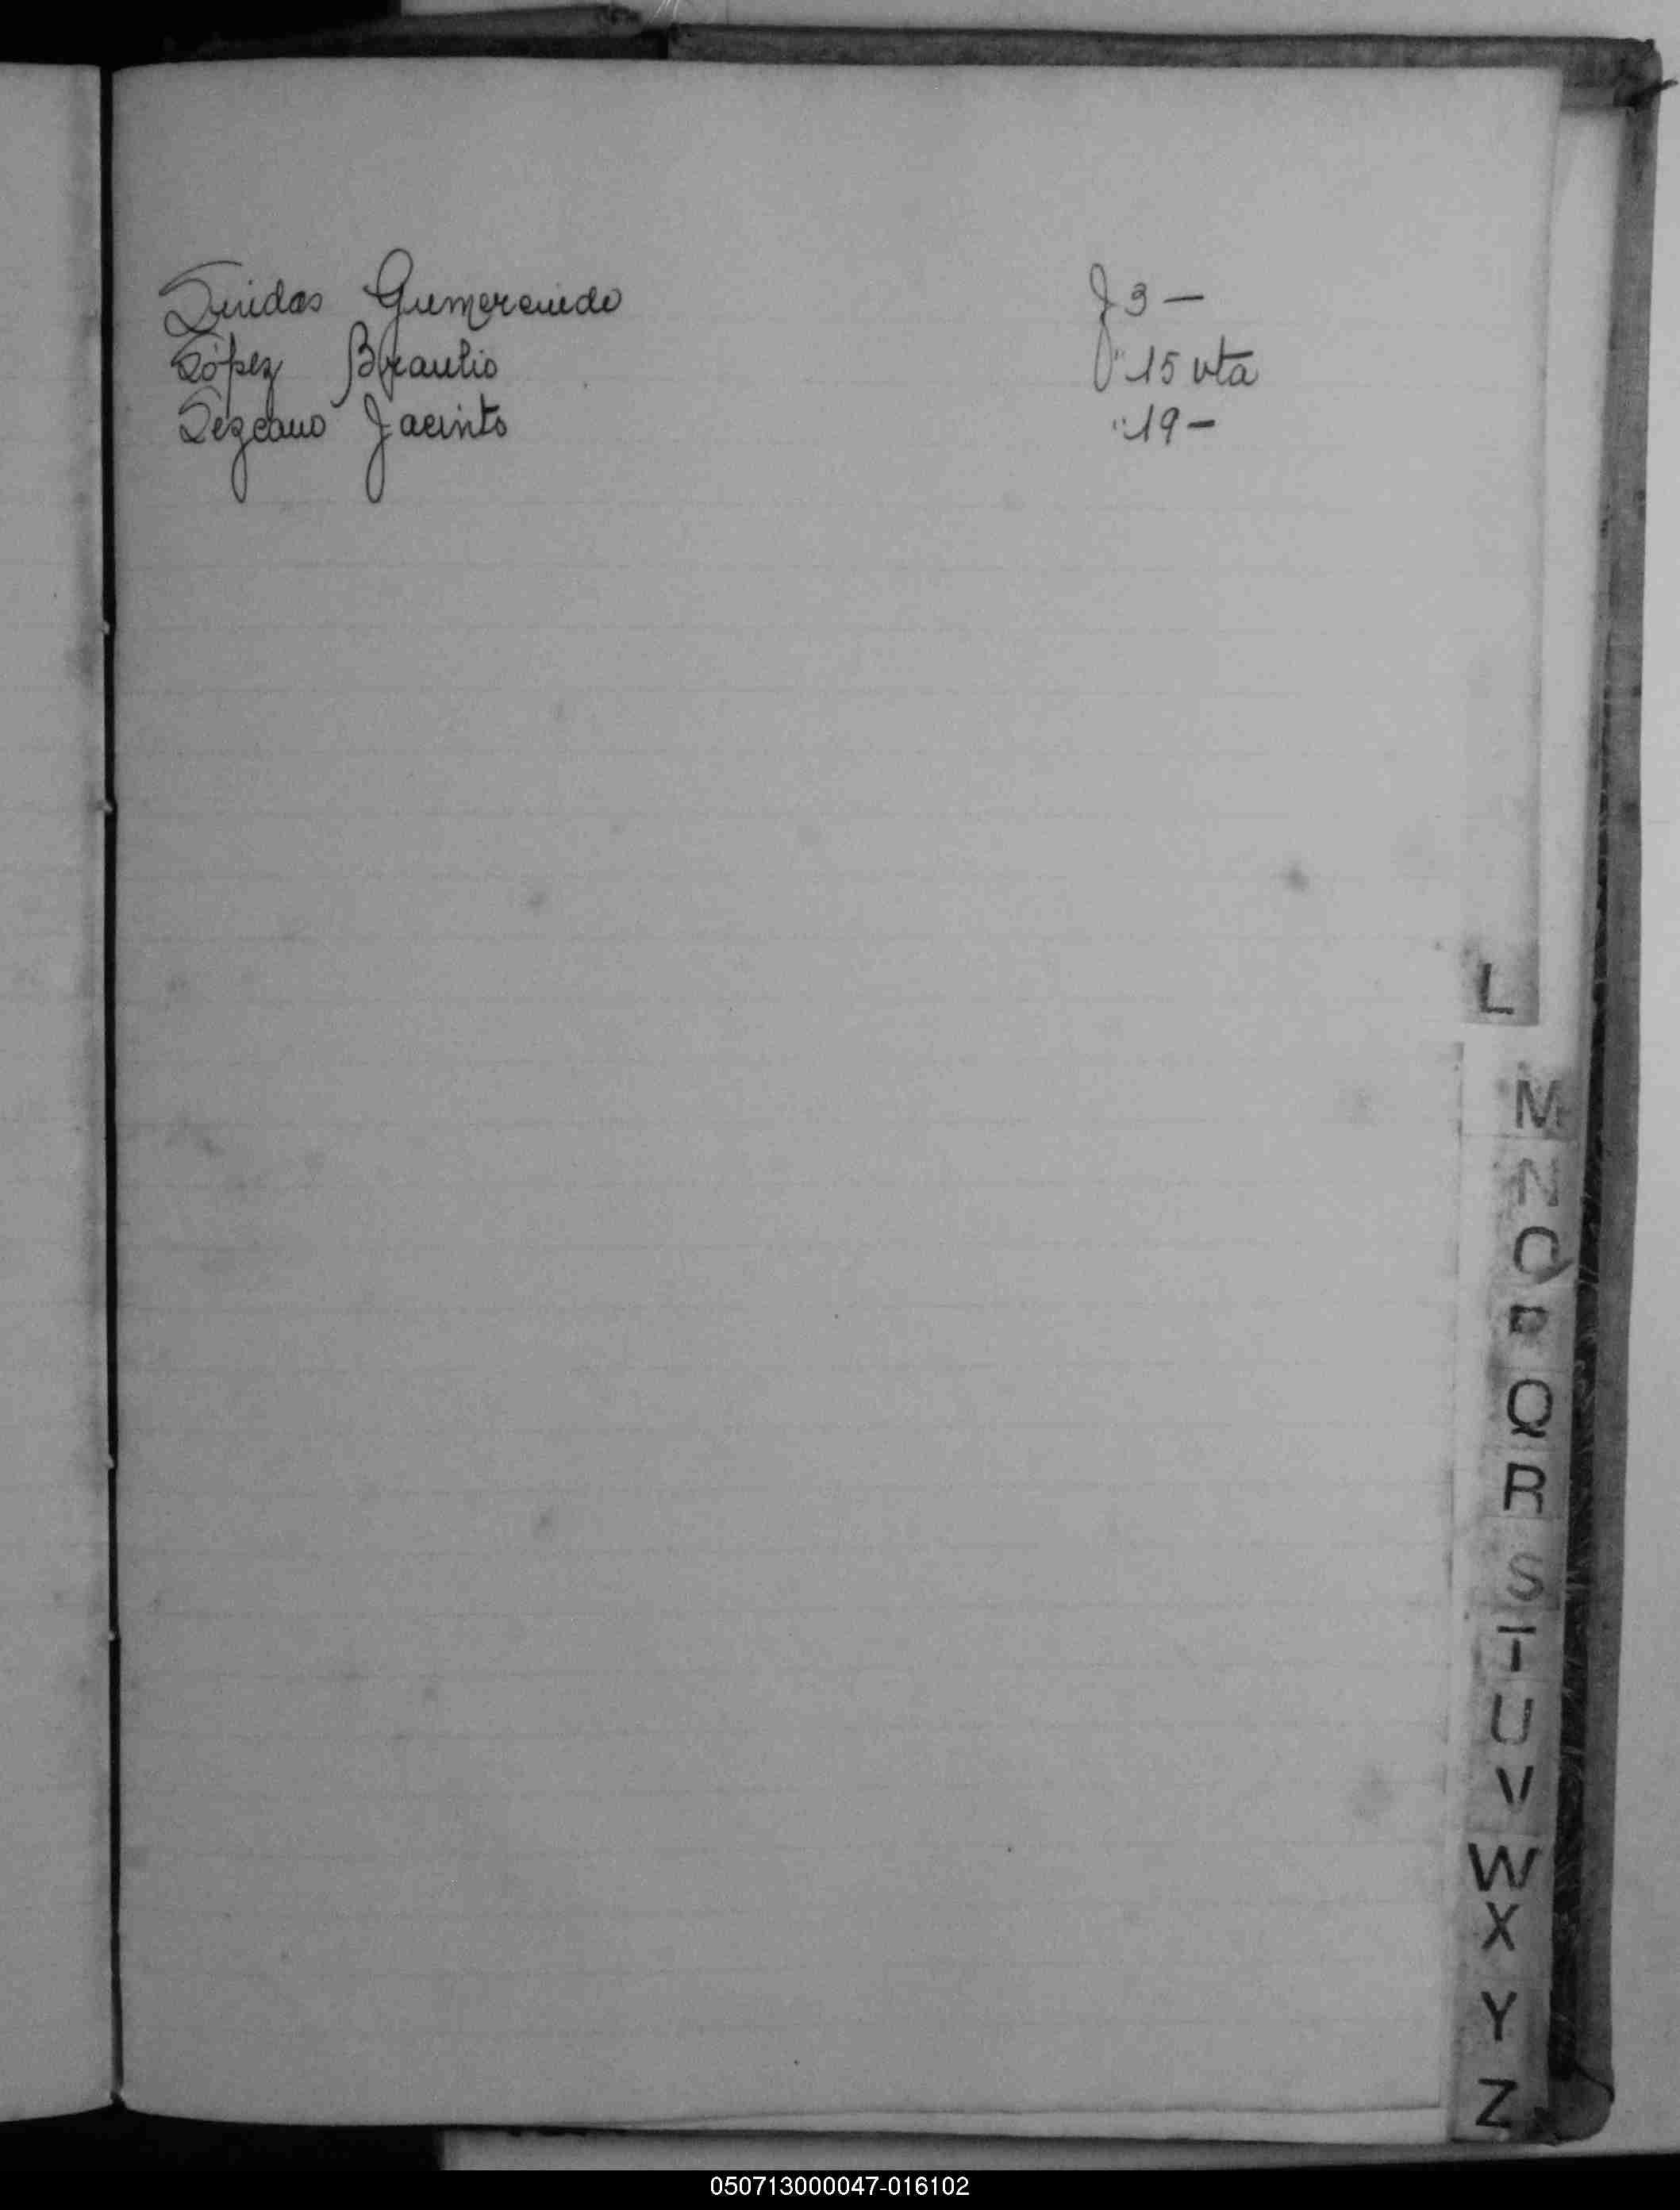 Luidas Gumercindo f 3 —
López Braulio " 15 vta
Lezcano Jacinto " 19 —
L
M
N
O
P
Q
R
S
T
U
V
W
X
Y
Z
050713000047-016102